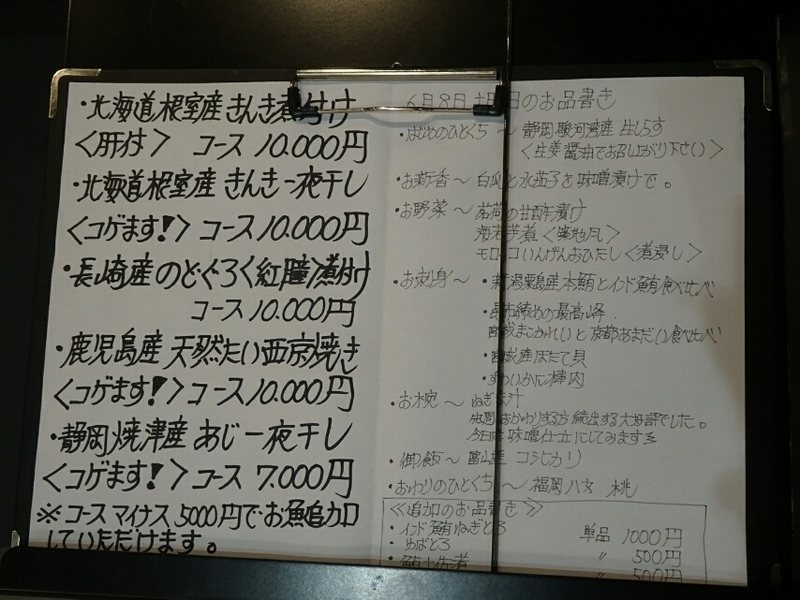 ・北海道根室産きんき煮付け
〈肝付〉 コース 10.000円
・北海道根室産 きんき一夜干し
〈コゲます!〉コース 10.000円
・長崎産のどぐろ〈紅瞳〉煮付け
コース 10.000円
・鹿児島産 天然たい西京焼き
〈コゲます!〉コース 10.000円
・静岡焼津産 あじ一夜干し
〈コゲます!〉コース 7.000円
※コースマイナス5000円でお魚追加
していただけます。
6月8日 日のお品書き
・はじめのひとくち〜 静岡駿河湾産 生しらす
〈生姜醤油でお召し上がり下さい〉
・お新香〜 白瓜と水茄子を味噌漬けで。
・お野菜〜 茗荷の甘酢漬け
海老芋煮〈築地風〉
モロッコいんげんおひたし〈煮浸し〉
・お刺身〜 ・新潟粟島産本鮪とインド鮪食べ比べ
・昆布締めの最高峰.
宮城まこがれいと京都あまだい食べ比べ
・宮城産ほたて貝
・ずわいかに棒肉
・お椀〜 ねぎ汁
先週おかわりする方続出する大好評でした。
今日は味噌仕立にしてみます
・御飯〜 富山産 コシヒカリ
・おわりのひとくち〜 福岡八女 桃
《追加のお品書き》
・インド鮪ねぎとろ 単品 1000円
・めばとろ 〃 500円
・鮪 〃 500円